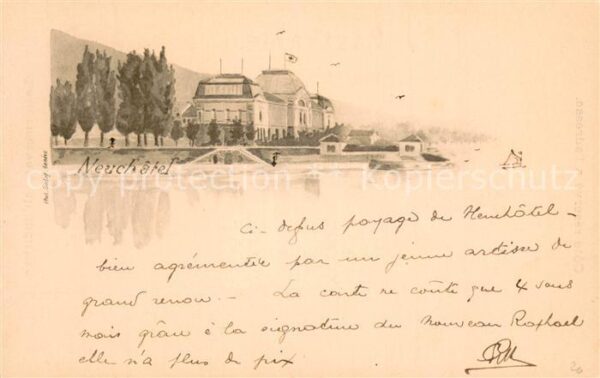 Neuchâtel
copy-protection · Kopierschutz
Ci-dessus payage de Neuchâtel -
bien agrémentée par un jeune artisse de
grand renom. - La carte ne coûte que 4 sous
mais grâce à la signature du nouveau Raphael
elle n'a plus de prix